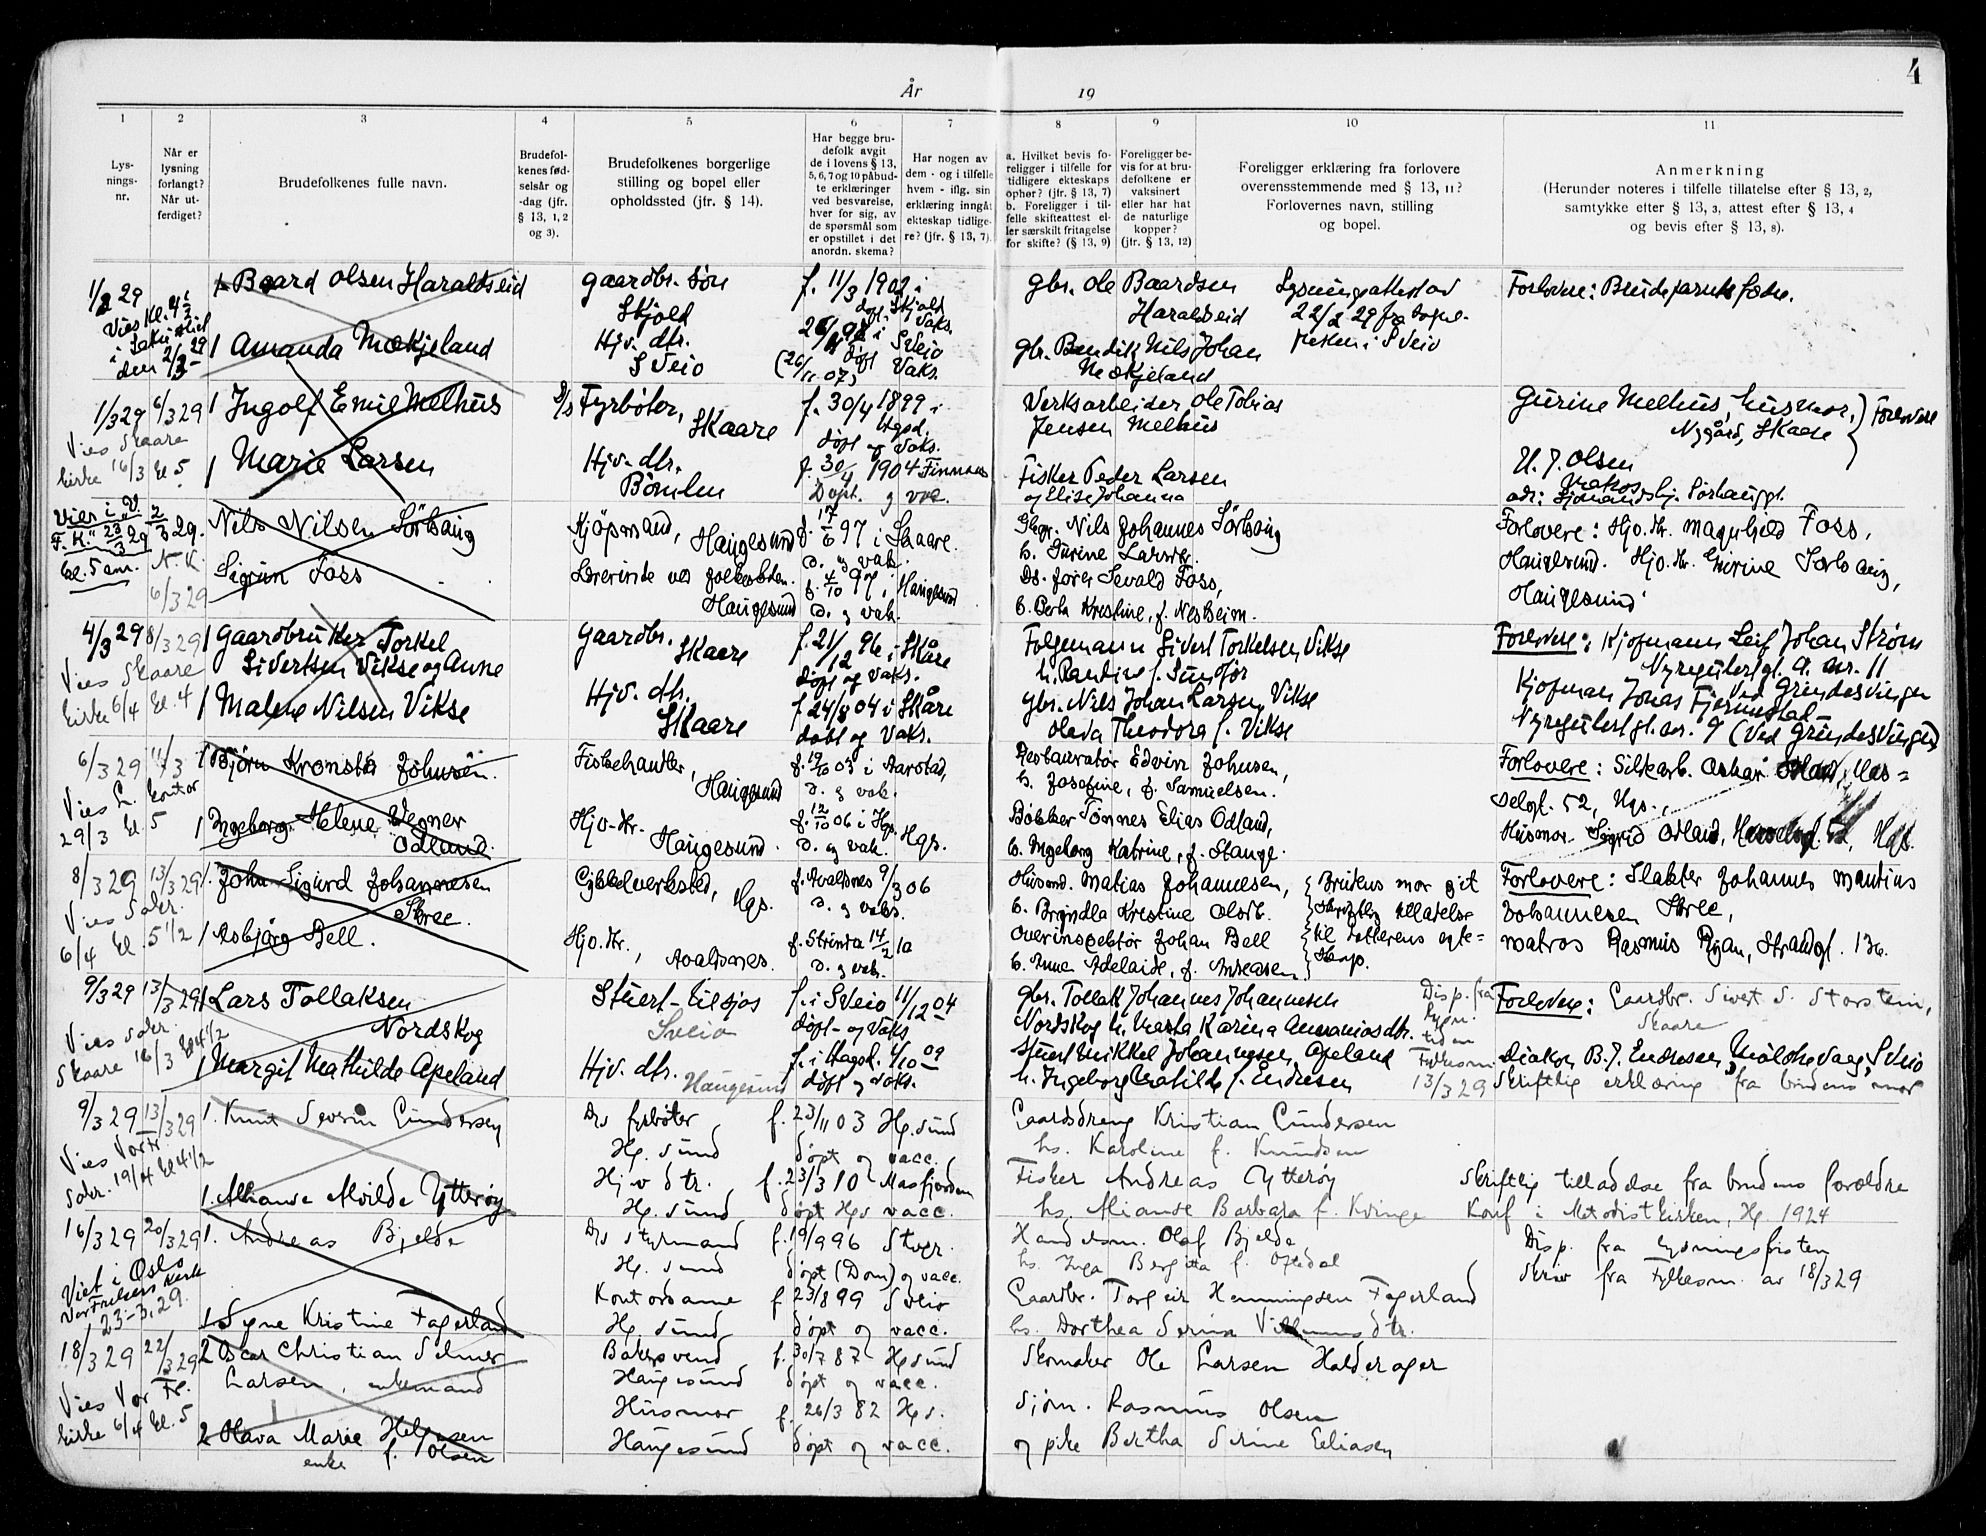 4
År
19
1
2
3
4
5
6
7
8
9
10
11
Lys-
nings-
nr.
Når er
lysning
forlangt?
Når ut-
ferdiget?
Brudefolkenes fulle navn.
Brudefol-
kenes fød-
selsår og
-dag (jfr.
§ 13, 1, 2
og 3).
Brudefolkenes borgerlige
stilling og bopel eller
opholdssted (jfr. § 14).
Har begge bru-
defolk avgit
de i lovens § 13,
5, 6, 7 og 10 påbud-
te erklæringer
ved besvarelse,
hver for sig, av
de spørsmål som
er opstillet i det
anordn. skema?
Har nogen av
dem - og i tilfelle
hvem - iflg. sin
erklæring inngåt
ekteskap tidlige-
re? (jfr. § 13, 7).
a. Hvilket bevis fo-
religger i tilfelle for
tidligere ekteskaps
ophør? (jfr. § 13, 7)
b. Foreligger i til-
felle skifteattest el-
ler særskilt fritagelse
for skifte? (§ 13, 9)
Foreligger be-
vis for at bru-
defolkene er
vaksinert
eller har hat
de naturlige
kopper?
(jfr. § 13, 12)
Foreligger erklæring fra forlovere
overensstemmende med § 13, 11?
Forlovernes navn, stilling
og bopel.
Anmerkning
(Herunder noteres i tilfelle tillatelse efter § 13, 2,
samtykke efter § 13, 3, attest efter § 13, 4
og bevis efter § 13, 8).
1/2 29
Vies Kl. 4½
i
den 2/3 29
1 Baard Olsen Haraldseid
1 Amanda Mækjeland
gaardbr. søn
Skjold
Hjv. dtr.
Sveio
f. 11/3 1902 i
Skjold
døpt Vaks.
i Sveio
døpt Vaks.
(26/11 07)
gbr. Ole Baardsen
Haraldseid
gbr. Bendik Nils Johan
Mækjeland
Lysningsattest av
22/2 29 fra Sogne-
presten i Sveio
Forlovere: Brudeparrets fædre.
1/3 29 6/3 29
Vies Skaare
kirke 16/3 kl 5
1 Ingolf Emil Melhus
1 Marie Larsen
D/s Fyrbøter,
Skaare
Hjv. dtr.
Bömlen
f. 30/4 1899 i
Hgsd.
døpt og Vaks.
f. 30/4 1904 Finnaas
Døpt. og vac.
Verksarbeider Ole Tobias
Jensen Melhus
Fisker Peder Larsen
og Elise Johanna
Gurine Melhus, husmor,
Nygård, Skaare
Forlovere
U. J. Olsen
Matros
adr: Sjømandshj. Sörhauggt.
Vies i V.
F. K. 23/3 29
kl. 5 em.
2/3 29.
N. K.
6/3 29
Nils Nilsen Sörhaug
Sigrun Foss
Kjöpmand,
Haugesund
Lærerinde ved folkeskolen.
Haugesund
f. 17/6 97 i Skaare.
D. og vak.
f. 4/10 97 i Haugesund
D. og vak.
Nils Johannes Sörhaug
h. Gurine Larsdtr.
Ds. fører Sevald Foss,
h. Berta Kristine, f. Nesheim.
Forlovere: Hjv. dtr. Magnhild Foss,
Haugesund. Hjv. dtr. Gurine Sörhaug,
Haugesund
4/3 29 8/3 29
Vies Skaare
kirke 6/4 kl. 4
1 Gaardbruker Torkel
Sivertsen Vikse og Anne
1 Malene Nilsen Vikse
gaardbr.
Skaare
Hjv. dtr.
Skaare
f. 21/12 96 i Skåre
døpt og Vaks.
f 24/8 04 i Skåre
døbt og Vaks.
Følgemann Sivert Torkelsen Vikse
h. Randine f. Sundfør
gbr. Nils Johan Larsen Vikse
Oleda Theodora f. Vikse
Forlovere: Kjøpmann Leif Johan Strøm
Nyregutert gt. A. nr. 11
ved Grindesvingen
Kjøpman Jonas Fjermestad
Nyregutert gt. nr. 9 (Ved Grindesvingen)
6/3 29 11/3
Vies L. kontor
29/3 kl. 5
1 Bjørn Kronstø Johnsen.
1 Ingeborg Helene Wegner
Ødland.
Fiskehandler,
Haugesund
Hjv-dtr.
Haugesund.
f. 19/10 03 i Avaldsnes,
D. og vak.
f. 12/10 06 i Hgs.
D. og vak. Hgs.
Restauratør Edvin Johnsen,
h. Josefine, f. Samuelsen.
Bökker Tönnes Elias Ödland,
h. Ingeborg Katrine, f. Stange.
Forlovere: Sildearb. Oskar Ödland, Has-
selgt. 52, Hgs.,
Husmor Sigrid Ödland, Hgs.
8/3 29 13/3 29
Vies Sakr.
6/4 kl. 5 1/2
1. John Sigurd Johannesen
Stree.
1 Asbjörg Bell.
Cykkelverksted,
Hgs.
Hjv. dtr.,
Avaldsnes.
f. Avaldsnes 9/3 06
D. og vaks.
f. Strinda 14/2 10
D. og vak.
Husmd. Matias Johannesen,
h. Bryndla Kristine Olsdtr.
Overinspektör Johan Bell
h. Anna Adelaide, f. Andersen
Brudens mor git
skriftlig tillatelse
til datterens egte-
skap.
Forlovere: Slakter Johannes Mandius
Johannesen Stree,
matros Rasmus Ryan, Strandgt. 136.
9/3 29 13/3 29
Vies Sakr.
Skaare 16/3 kl 4 1/2
1 Lars Tollaksen
Nordskog
1 Margit Mathilde Apeland
Stuert-tilsjøs
Sveio
Hjv. dtr. Haugesund
f. i Sveio 11/12 04
døpt- og Vaks
f. i Hagsd. 4/10 09
døpt og Vaks.
gbr. Tollak Johannes Johannesen
Nordskog h. Marta Karina Ananiasdtr.
Stuert Mikkel Johannesen Apeland
h. Ingeborg Matilde f. Endresen
Disp. fra
lysn.
tiden
Fylkesm.
13/3 29
Forlovere: Gaardbr. Sivert S. Storstein,
Skaare
Diakon B. J. Endresen, Mölstrevaag, Sveio
Skriftlig erklæring fra brudens mor
9/3 29 13/3 29
Vies Vor Fr.
Sakr. 19/4 kl 4 1/2
1. Knut Severin Gundersen
1. Mianda Alvilde Ytterøy
D/s fyrböter
Hg. sund
Hjv dtr.
Hg. sund
f. 23/11 03 Hg. sund
døpt og vacc.
f. 23/3 10 Masfjorden
døpt Hgs vacc.
Gaardsdreng Kristian Gundersen
hs. Karoline f. Knudsen
Fisker Andreas Ytterøy
hs. Mianda Barbara f. Kvinge
Skriftlig tilladelse fra brudens forældre
Konf i Metodistkirken, Hg. 1924
16/3 29 20/3 29
Viet i Oslo
Vor Frelsers kirke
23-3.29.
1. Andreas Bjelde
1 Signe Kristine Fagerland
D/s styrmand
Hg. sund
Kontordame
Hg. sund
f. 19/9 96 Stvgr.
døpt (Dom) og vacc.
f 23/8 99 Sveio
døpt og vacc.
Handelsm. Olaf Bjelde
hs. Inga Bergitta f. Oftedal
Gaardbr. Torgeir Henningsen Fagerland
hs. Dorthea Serina dtr.
Disp. fra lysningsfristen
Skriv fra Fylkesm. av 18/3 29
18/3 29 22/3 29
Vies Vor Fr.
kirke 6/4 kl. 5
2 Oscar Christian Selmer
Larsen, enkemand
2 Olava Marie Helgesen
enke f. Olsen
Bakersvend
Haugesund
Husmor
Haugesund
f. 30/7 87 Hgsund
døpt og vacc.
f. 26/3 82 Hgs.
døpt og vacc.
Skomaker Ole Larsen Halderager
Sjøm. Rasmus Olsen
og pike Bertha Serine Eliasen